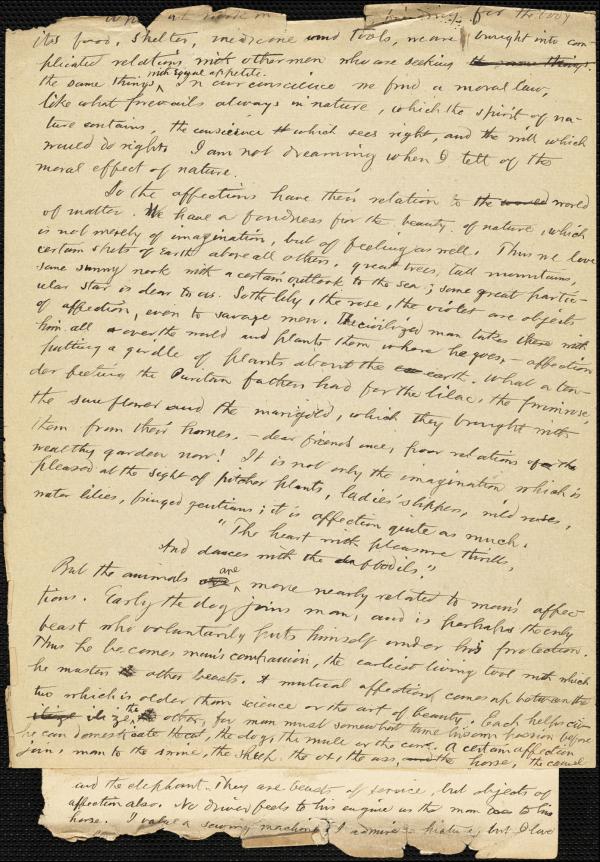 for the body
its food, shelter, medicine and tools, we are brought into com-
plicated relations with other men who are seeking the same things
the same things with equal appetite. In our conscience we find a moral law,
like what prevails always in nature, which the spirit of na-
ture contains, the conscience which sees right, and the will which
would do right. I am not dreaming when I tell of the
moral effect of nature.
So the affections have their relation to the world world
of matter. We have a fondness for the beauty of nature, which
is not merely of imagination, but of feeling as well. Thus we love
certain spots of Earth above all others; great trees, tall mountains,
some sunny nook with a certain outlook to the sea; some great partic-
ular star is dear to us. So the lily, the rose, the violet are objects
of affection, even to savage men. The civilized man takes these with
him all over the world and plants them where he goes, - affection
putting a girdle of plants about the earth. What a ten-
der feeling the Puritan fathers had for the lilac, the primrose,
the sunflower and the marigold, which they brought with
them from their homes, - dear friends once, poor relations of the
wealthy garden now! It is not only the imagination which is
pleased at the sight of pitcher plants, ladies' slippers, wild roses,
water lilies, fringed gentians; it is affection quite as much.
"The heart with pleasure thrills,
And dances with the daffodils."
But the animals are more nearly related to man's affec-
tions. Early the dog joins man, and is perhaps the only
beast who voluntarily puts himself under his protection.
Thus he becomes man's companion, the earliest living tool with which
he masters other beasts. A mutual affection comes up between the
two which is older than science or the art of beauty. Each helps civ-
ilize the other, for man must somewhat tame his own passion before
he can domesticate the cat, the dog, the mule or the cow. A certain affection
joins man to the swine, the sheep, the ox, the ass, and the horse, the camel
and the elephant. They are beasts of service, but objects of
affection also. No driver feels to his engine as the man does to his
horse. I value a sewing machine, I admire but I love